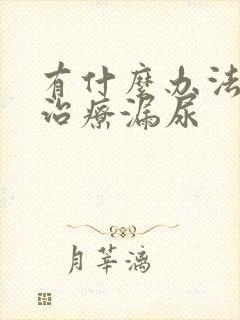 有什麼办法
治療漏尿
月莘漓